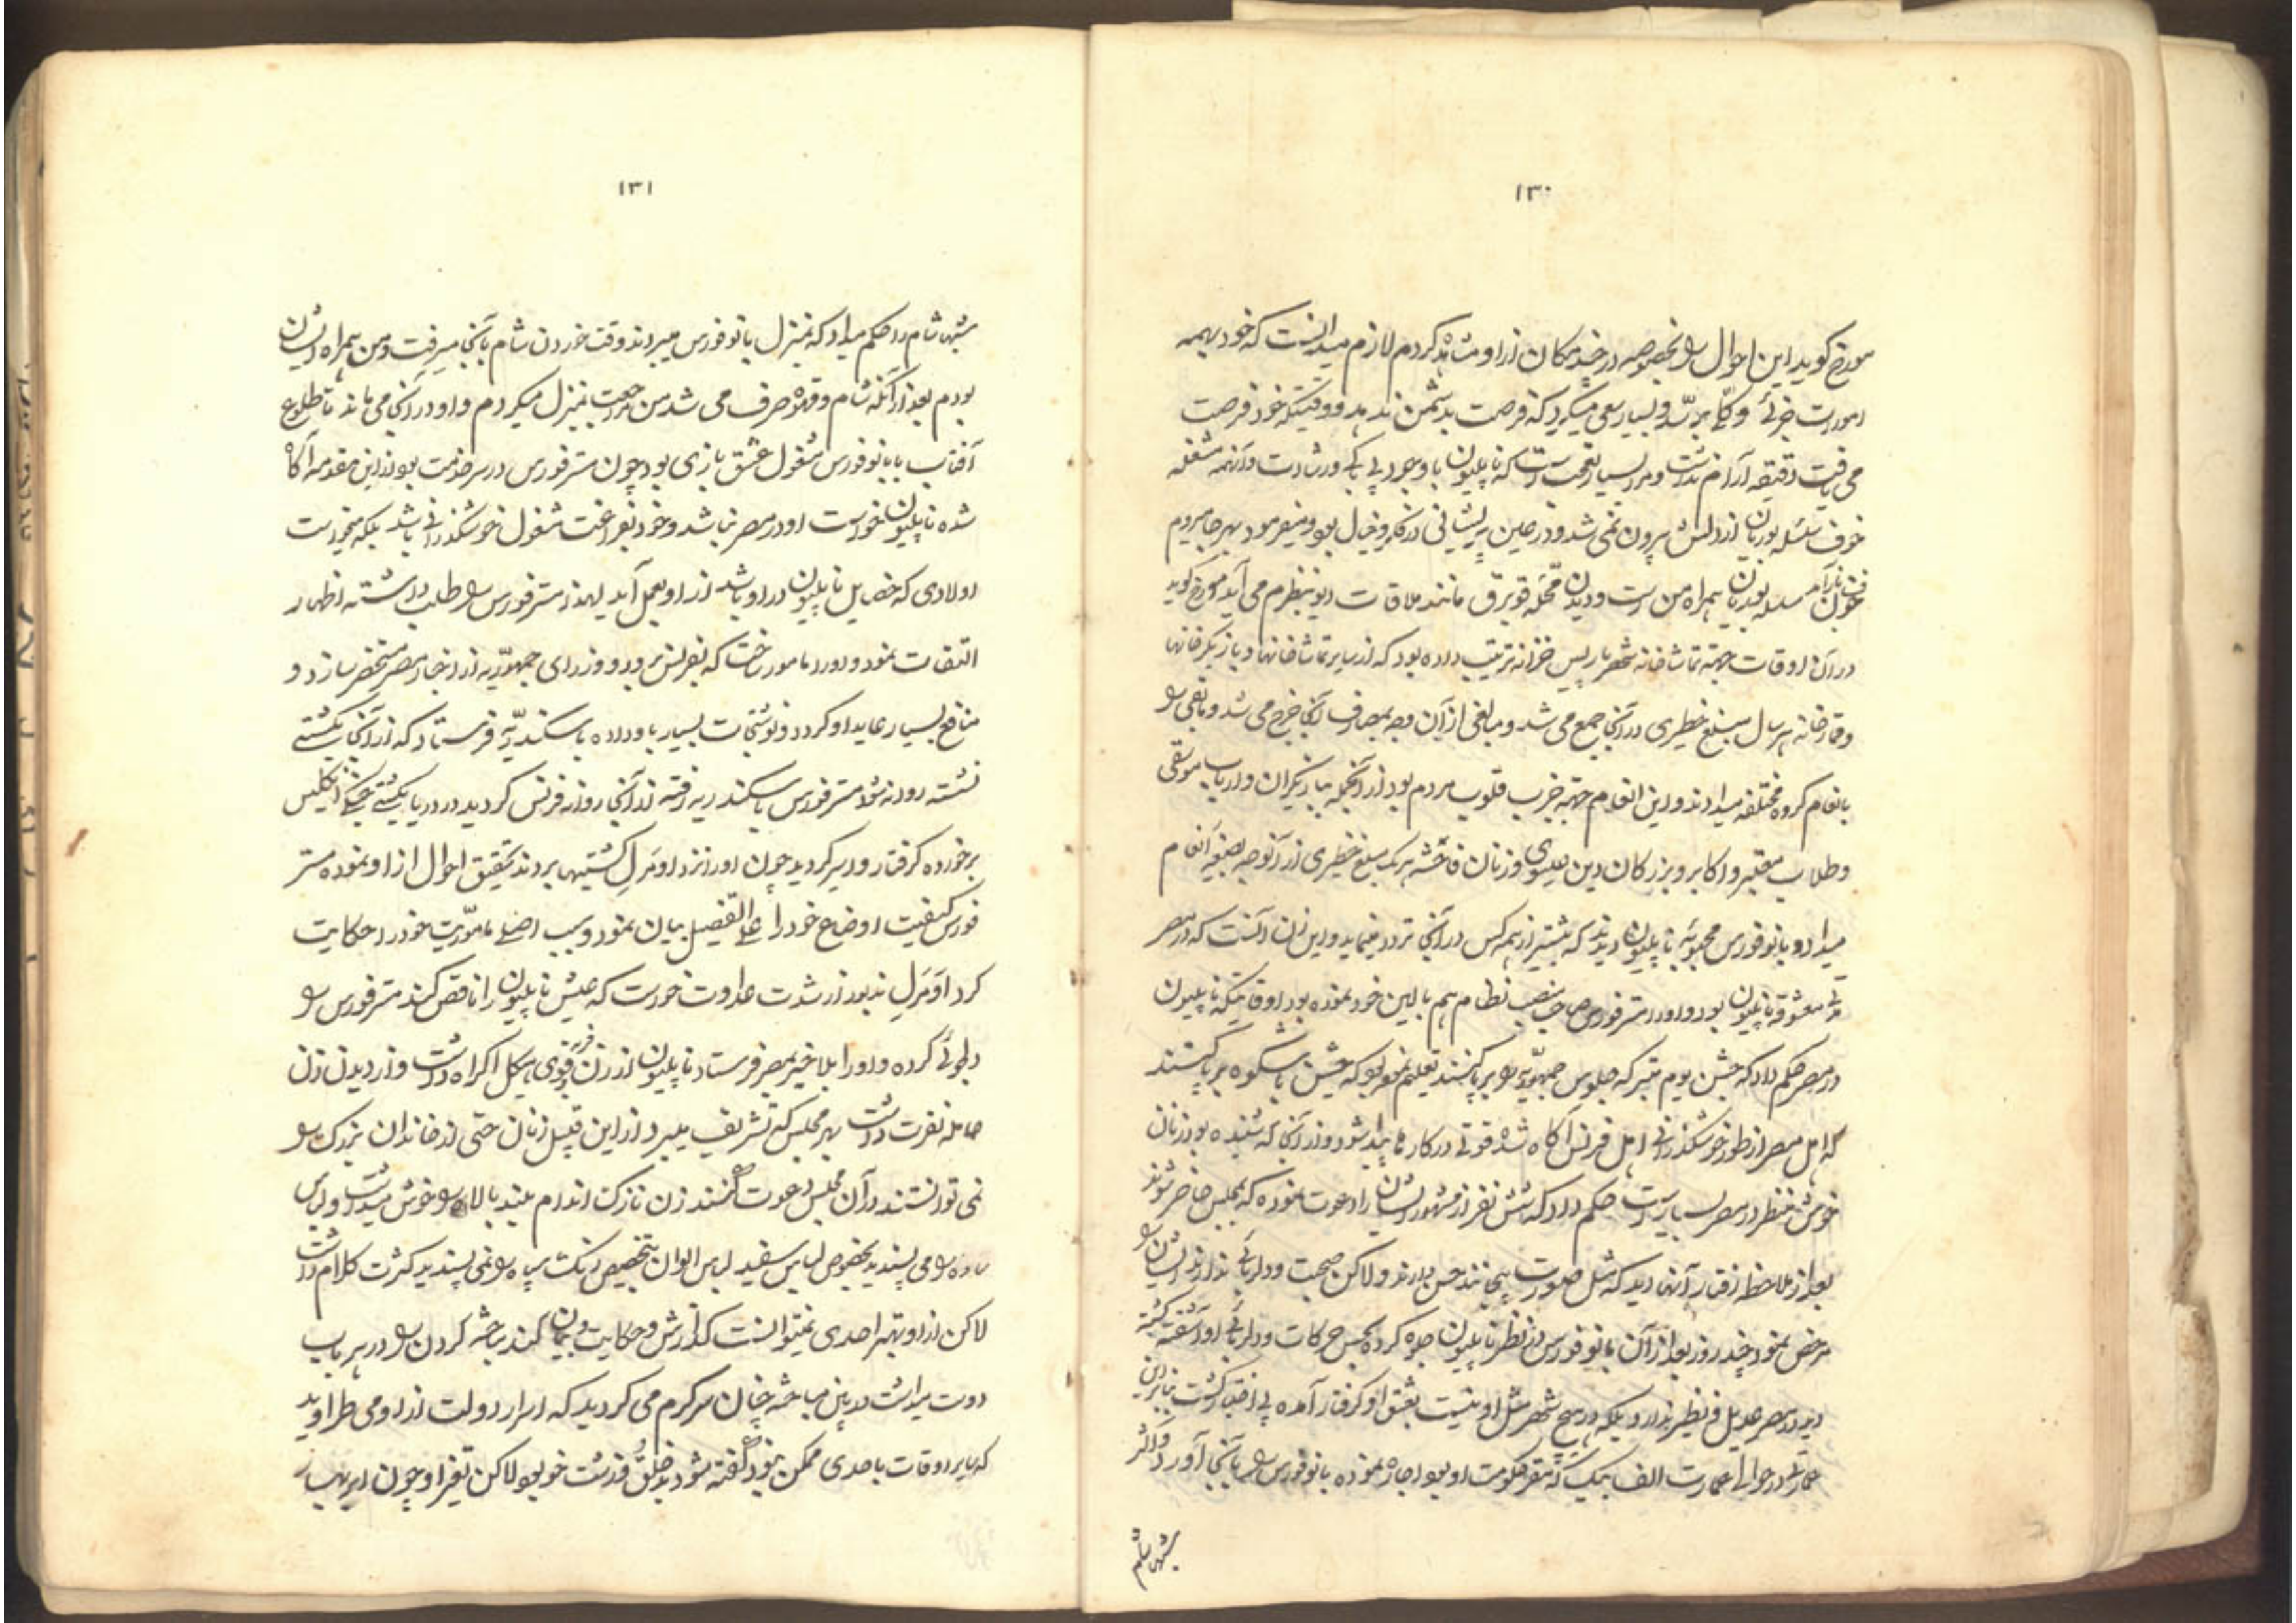 ۱۳۰
مورخ گوید این احوال را بخصوصه در چند مکان از او مشاهده کردم لازم میدانست که خود بهمه
امورات جزئی و کلی برسد و بسیار سعی میکرد که فرصت بدشمن ندهد و وقتیکه خود فرصت
می یافت دقیقه آرام نداشت و مرا بسیار تعجب است که ناپلیون با وجود بی باکی و رشادت و آنهمه مشغله
خوف سلسله بوربان از دلش بیرون نمی شد و در عین پریشانی در فکر و خیال بود و میفرمود بهر جا میروم
خوف سلسله بوربان همراه من است و دیدن محله توبرق مانند ملاقات دیو بنظرم می آید مورخ گوید
در آن اوقات جهة تماشاخانه شهر پاریس خزانه ترتیب داده بود که از سایر تماشاخانها و بازیگرخانها
و قمارخانه هر سال مبلغ خطیری در آنجا جمع می شد و مبالغی از آن وجه بمصارف آنجا خرج می شد و باقی را
بانعام گروه مختلفه میدادند و این انعام جهة جذب قلوب مردم بود از آنجمله ببازیگران و ارباب موسیقی
و طلاب معتبر و اکابر و بزرگان دین عیسوی و زنان فاحشه هر یک مبلغ خطیری از آنوجه بصیغه انعام
میداد و بانو فورس محبوبه ناپلیون دیدند که بیشتر از همه کس در آنجا تردد مینماید و این زن آنست که در مصر
مدتی معشوقه ناپلیون بود و او را مستر فورس صاحب منصب نظام هم بالین خود نموده بود اوقاتیکه ناپلیون
در مصر حکم داد که جشن یوم متبرکه جلوس جمهوریه را برپا کنند تعلیم نمود که جشن باشکوه برپا کنند
که اهل مصر از طور خوشگذرانی اهل فرنس آگاه شده قوتی در کار ما پیدا شود و از آنجا که شنیده بود زنان
خوش منظر در مصر بسیار است حکم داد که شش نفر از مشهور ایشان را دعوت نموده که بمجلس حاضر شوند
بعد از ملاحظه رفتار آنها دید که مثل صورت بیجانند حسن دارند ولاکن صحبت و دلربائی ندارند ایشان را
مرخص نمود چند روز بعد از آن بانو فورس در نظر ناپلیون جلوه کرده بحسن حرکات و دلربائی او آشفته گشته
دید در مصر عدیل و نظیر ندارد بلکه در هیچ شهر مثل او نیست بعشق او گرفتار آمده بی اختیار گشت بنابراین
عمارتی در حوالی عمارت الف بیک که مقر حکومت او بود اجاره نموده بانو فورس را بآنجا آورد و اکثر
شبها شام
۱۳۱
شبها شام را حکم میداد که بمنزل بانو فورس میبردند وقت خوردن شام بآنجا میرفت و من همراه ایشان
بودم بعد از آنکه شام و قهوه صرف می شد من مراجعت بمنزل میکردم و او در آنجا می ماند تا طلوع
آفتاب با بانو فورس مشغول عشق بازی بود چون مستر فورس در سر خدمت بود از این مقدمه آگاه
شده ناپلیون نخواست او در مصر نباشد و خود بفراغت مشغول خوشگذرانی باشد بلکه میخواست
اولادی که خصایل ناپلیون در او باشد از او بعمل آید لهذا مستر فورس را طلب داشته اظهار
التفات نمود و او را مامور ساخت که بفرنس برود و وزرای جمهوریه از اخبار مصر مستحضر سازد و
منافع بسیار عاید او گردد و نوشتجات بسیار باو داده باسکندریه فرستاد که از آنجا بکشتی
نشسته روانه شود مستر فورس باسکندریه رفته از آنجا روانه فرنس گردید در دریا بکشتی جنگی انگلیس
برخورده گرفتار و اسیر گردید چون او را نزد اومرل کشتیها بردند تحقیق احوال از او نموده مستر
فورس کیفیت اوضاع خود را علی التفصیل بیان نمود و سبب اصلی ماموریت خود را حکایت
کرد اومرل مذبور از شدت عداوت خواست که عیش ناپلیون را ناقص کند مستر فورس را
دلجوئی کرده و او را بلاتاخیر بمصر فرستاد ناپلیون از زن فربه و قوی هیکل اکراه داشت و از دیدن زن
حامله نفرت داشت بهر مجلس که تشریف میبرد از این قبیل زنان حتی از خاندان بزرگ را
نمی توانستند در آن مجلس دعوت کنند زن نازک اندام بلند بالا را خوش میداشت و لباس
ساده را می پسندید بخصوص لباس سفید لباس الوان بتخصیص رنگ سیاه را نمی پسندید کثرت کلام داشت
لاکن از او بهتر احدی نمیتوانست گذارش و حکایت بیان کند مباحثه کردن را در هر باب
دوست میداشت در بین مباحثه چنان سرگرم می گردید که اسرار دولت از او می طراوید
که سایر اوقات باحدی ممکن نبود گفته شود بد خلق و زشت خو بود لاکن تغیر او چون ابر بهار